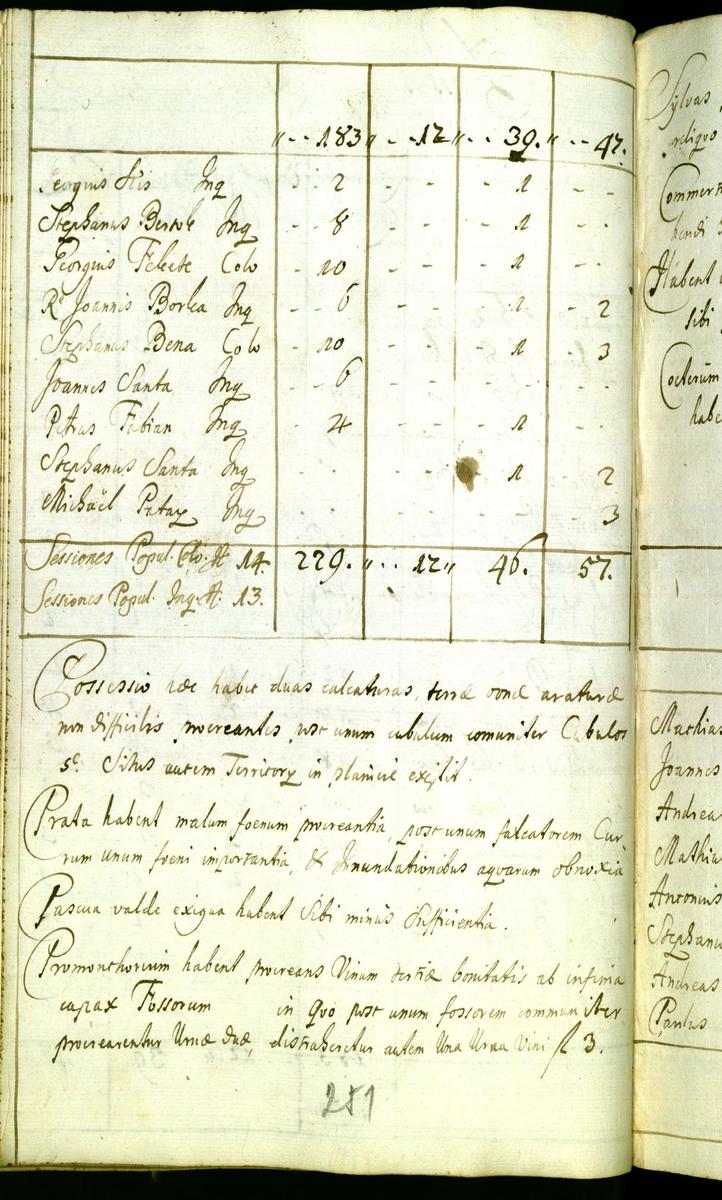 " - - 183 " - - 12 " - - 39. " - - 47.
Georgius Kis Inq - - 2 - - - 1 - -
Stephanus Bertok Inq - - 8 - - - 1 - -
Georgius Fekete Colo - 10 - - - 1 - -
Joannis Borka Inq - - 6 - - - 1 - 2
Stephanus Bena Colo - 10 - - - 1 - 3
Joannes Santa Inq - - 6 - - - - - -
Petrus Fabian Inq - - 4 - - - 1 - -
Stephanus Santa Inq - - - - - 1 - 2
Michaël Pataÿ Inq - - - - - - - 3
Sessiones Popul. Colo. 14. 229. " - - 12 " 46. 57.
Sessiones Popul. Inq. 13.
Possessio haec habet duas calcaturas, terrae bonae araturae
non difficilis procreantis post unum cubulum comuniter Cubulos
5. Situs autem Territory in planicie existit.
Prata habent malum foenum procreantia, post unum falcatorem Cur
rum unum foeni importantia, & Innundationibus aquarum obnoxia
Pascua valde exigua habent sibi minus sufficientia.
Promonthorium habent procreans Vinum tertiae bonitatis ab infima
capax Fossorum in quo post unum fossorem communiter
procrearentur Urnae duae, distraheretur autem Una Urna Vini fl 3.
251
Sylvas
reliquo
Commer
hendi
Habent
sibi
Coeterum
habe
Mathias
Joannes
Andrea
Mathia
Antonius
Stephanu
Andreas
Paulus